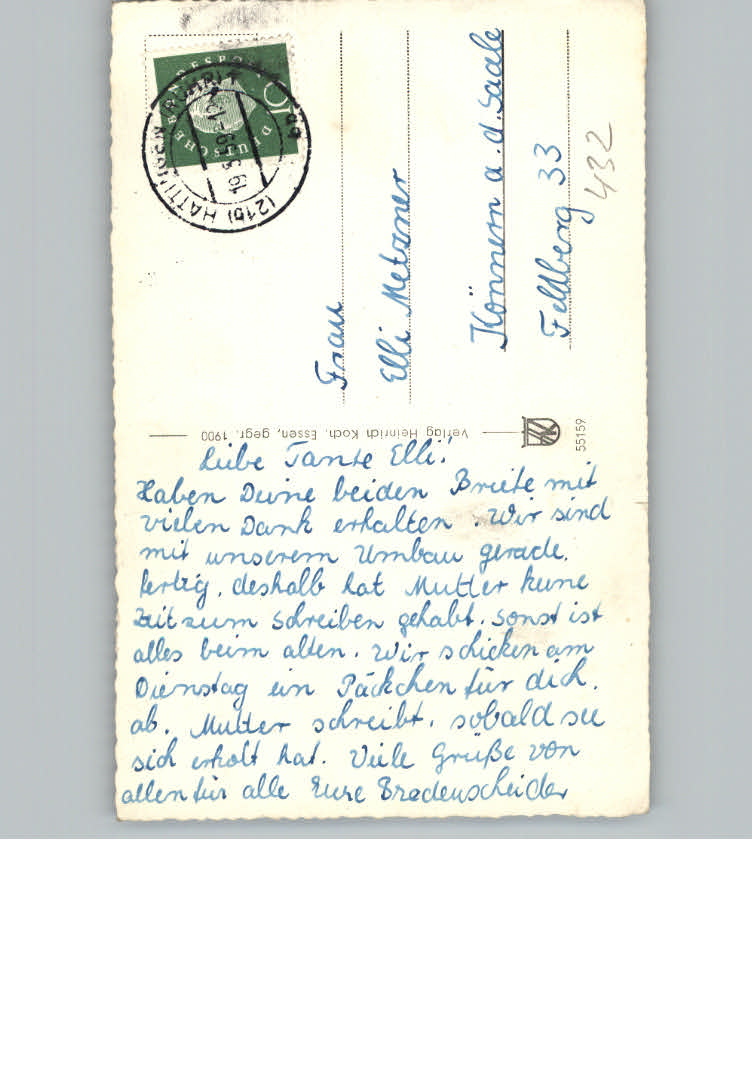 Liebe Tante Elli!
Haben Deine beiden Briefe mit
vielen Dank erhalten. Wir sind
mit unserem Umbau gerade
fertig, deshalb hat Mutter keine
Zeit zum Schreiben gehabt. Sonst ist
alles beim alten. Wir schicken am
Dienstag ein Päckchen für dich
ab. Mutter schreibt, sobald sie
sich erholt hat. Viele Grüße von
allen für alle Eure Bredenscheider
Frau
Elli Metzner
Könnern a. d. Saale
Feldberg 33
432
Verlag Heinrich Koch, Essen, gegr. 1900
55159
DEUTSCHE BUNDESPOST
10
(21b) HATTINGEN (RUHR) 1